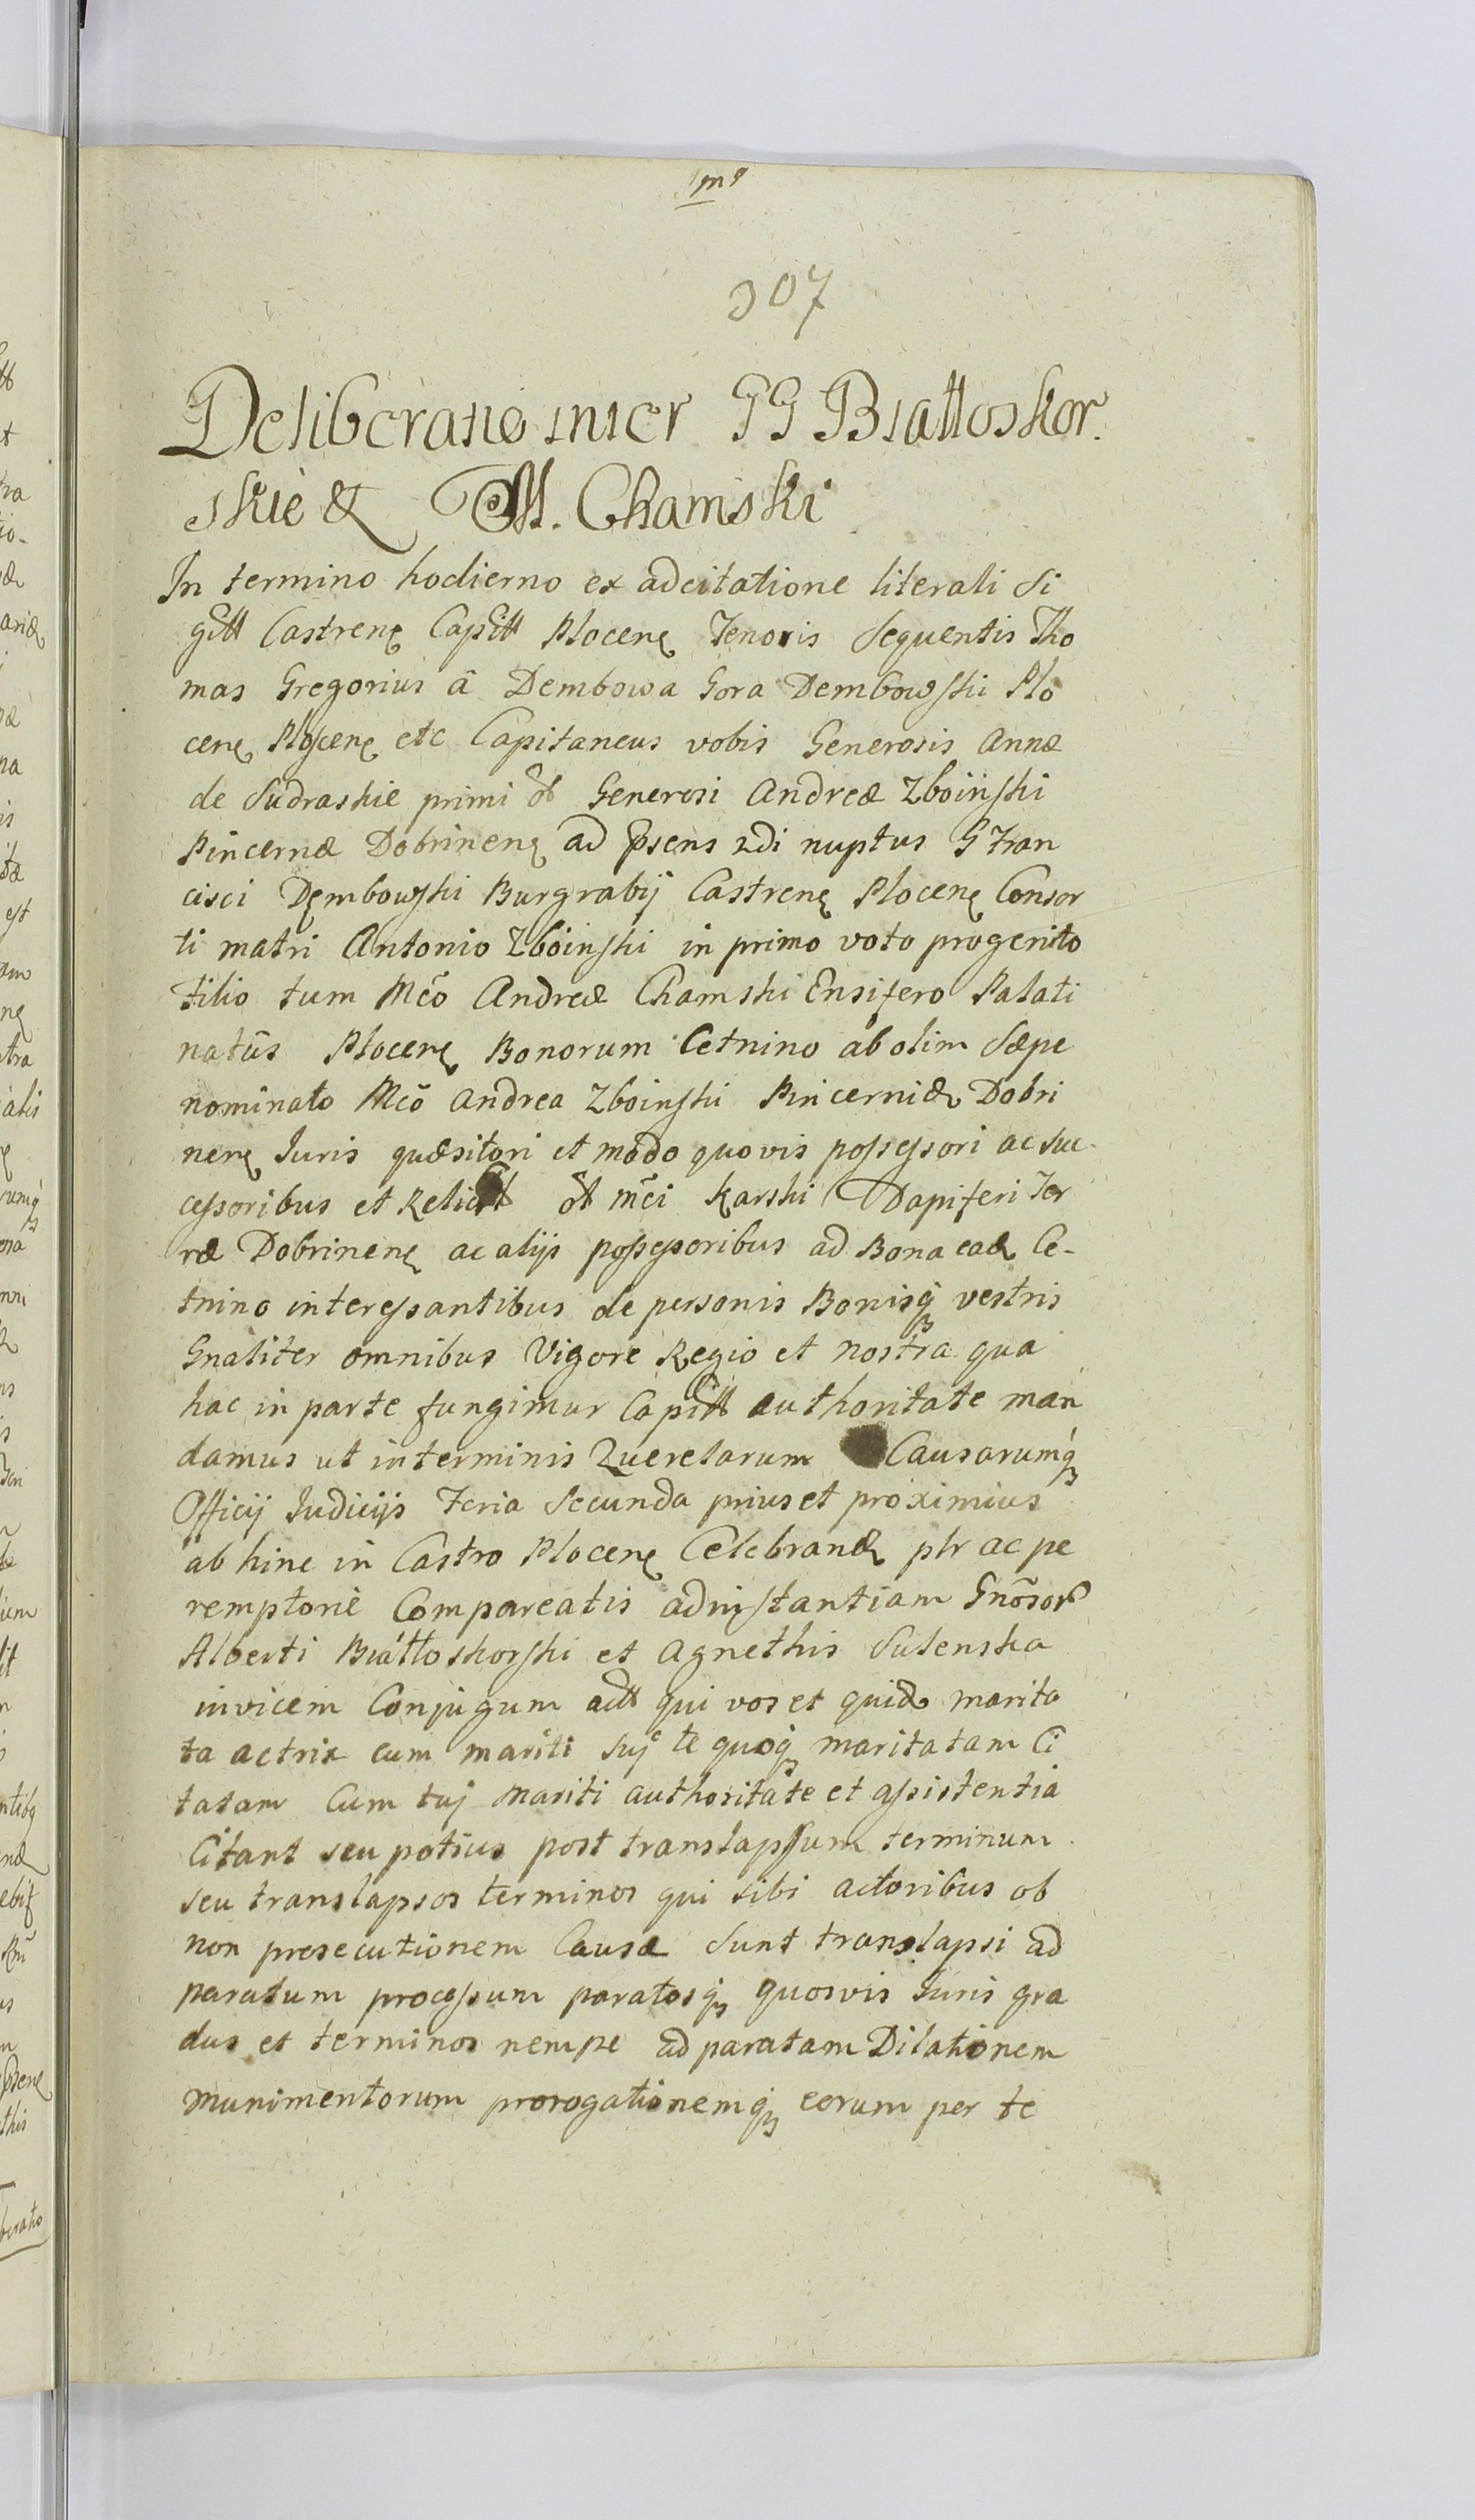 307
Deliberatio inter GG Białłoskor.
skie & M. Chamski
In termino hodierno ex adcitatione literali Si
gill Castren Capitt Plocen Tenoris Sequentis Tho
mas Gregorius â Dembowa Gora Dembowski Plo
cen Plocen etc Capitaneus vobis Generosis Annæ
de Sudraskie primi ol Generosi Andreæ Zboinski
Pincernæ Dobrinen ad psens 2di nuptus G Fran
cisci Dembowski Burgrabij Castren Plocen Consor
ti matri Antonio Zboinski in primo voto progenito
filio tum Mco Andreæ Chamski Ensifero Palati
natûs Plocen Bonorum Cetnino ab olim Sæpe
nominato Mco Andrea Zboinski Pincernid Dobri
nen Iuris quæsitori et modo quovis possessori ac suc
cessoribus et Relict ol Mci Karski Dapiferi Ter
ræ Dobrinen ac alijs possessoribus ad Bona ead Ce-
tnino interessantibus de personis Bonisq vestris
Gnaliter omnibus Vigore Regio et nostra qua
hac in parte fungimur Capitt authoritate man
damus ut in terminis Querelarum Causarumq
Officij Iudicijs Feria Secunda prius et proximius
ab hinc in Castro Plocen Celebrand plr ac pe
remptoriè Compareatis ad instantiam Gnosor
Alberti Białłoskorski et Agnethis Sulenska
invicem Conjugum act qui vos et quid marita
ta actrix cum mariti suj te quoq maritatam Ci
tatam Cum tuj Mariti authoritate et assistentia
Citant seu potius post translapsum terminum
seu translapsos terminos qui sibi actoribus ob
non presecutionem Causæ sunt translapsi ad
paratum processum paratosq quosvis Iuris gra
dus et terminos nempe ad paratam Dilationem
Munimentorum prorogationemq eorum per te